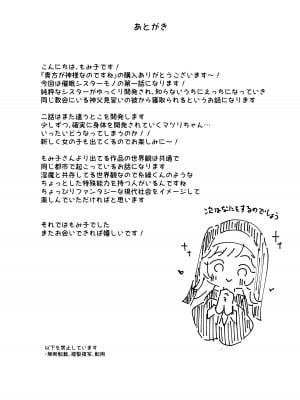 あとがき
こんにちは、もみ子です。
「貴方が神様なのですね」の購入ありがとうございます～！
今回は催眠シスターモノの第一話になります
純粋なシスターがゆっくり開発され、知らないうちにえっちになっていき
同じ教会にいる神父見習いの彼から寝取られるというお話になります
二話はまた違うとこを開発します
少しずつ、確実に身体を開発されていくマツリちゃん…
いったいどうなってしまうのか！！
新しく女の子も出てくるのでお楽しみに～！
もみ子さんより出てる作品の世界観は共通で
同じ都市で起こっているお話になります
淫魔と共存してる世界観なので糸緑くんのような
ちょっとした特殊能力を持つ人がいるんですね
ちょっぴりファンタジーな現代社会をイメージして
楽しんでいただければと思います
それではもみ子でした
またお会いできれば嬉しいです！
次はなにをするのでしょう
以下を禁止しています
・無断転載、複製複写、転用